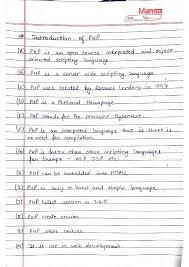 # Introduction of PHP
PHP is an open source interpreted and object
oriented scripting language
PHP is a server side scripting language
PHP was created by Rasmus Lerdorf in 1994
PHP is a Personal Homepage
PHP stands for Pre processor Hypertext.
PHP is an interpreted language that is there is
no need for compilation.
PHP is faster than other scripting languages
for Example - ASP JSP etc.
PHP can be embedded into HTML
PHP is easy to learn and simple language
PHP latest version is 7.4.0
PHP create session
PHP store cookies
It is use in web development.